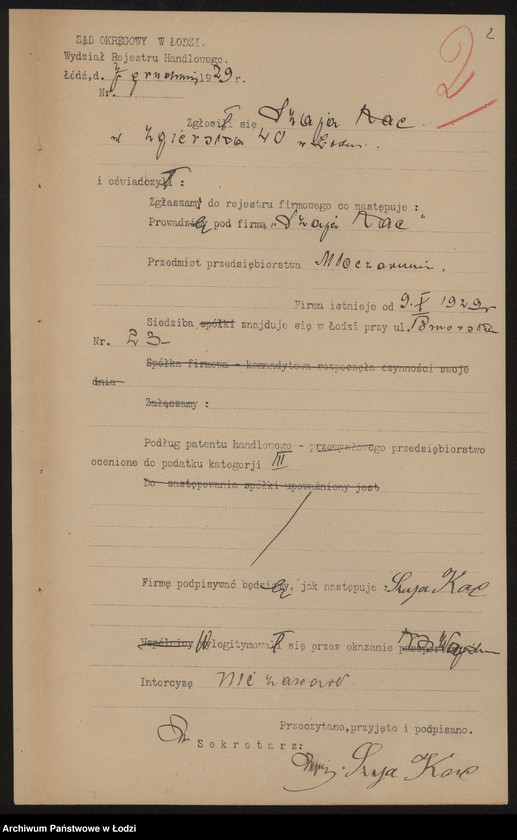 2
2
SĄD OKRĘGOWY W ŁODZI.
Wydział Rejestru Handlowego.
Łódź,d. 7 grudnia 1929 r.
Nr.
Zgłosił się Szaja Kac
ul Zgierska 40 w Łodzi.
i oświadczył :
Zgłaszam do rejestru firmowego co następuje :
Prowadzę pod firmą „Szaja Kac"
Przedmiot przedsiębiorstwa Mleczarnia.
Firma istnieje od 9.X 1929 r
Siedziba spółki znajduje się w Łodzi przy ul. Pomorska
Nr. 23
Spółka firmowa - komandytowa rozpoczęła czynności swoje
dnia
Załączamy :
Podług patentu handlowego - przemysłowego przedsiębiorstwo
ocenione do podatku kategorji III
Do zastępowania spółki upoważniony jest
Firmę podpisywać będę, jak następuje : Szaja Kac
Wspólnicy Wylegitymował się przez okazanie
Intercyzę nie zawarł
Przeczytano,przyjęto i podpisano.
Sekretarz:
Szaja Kac
Archiwum Państwowe w Łodzi